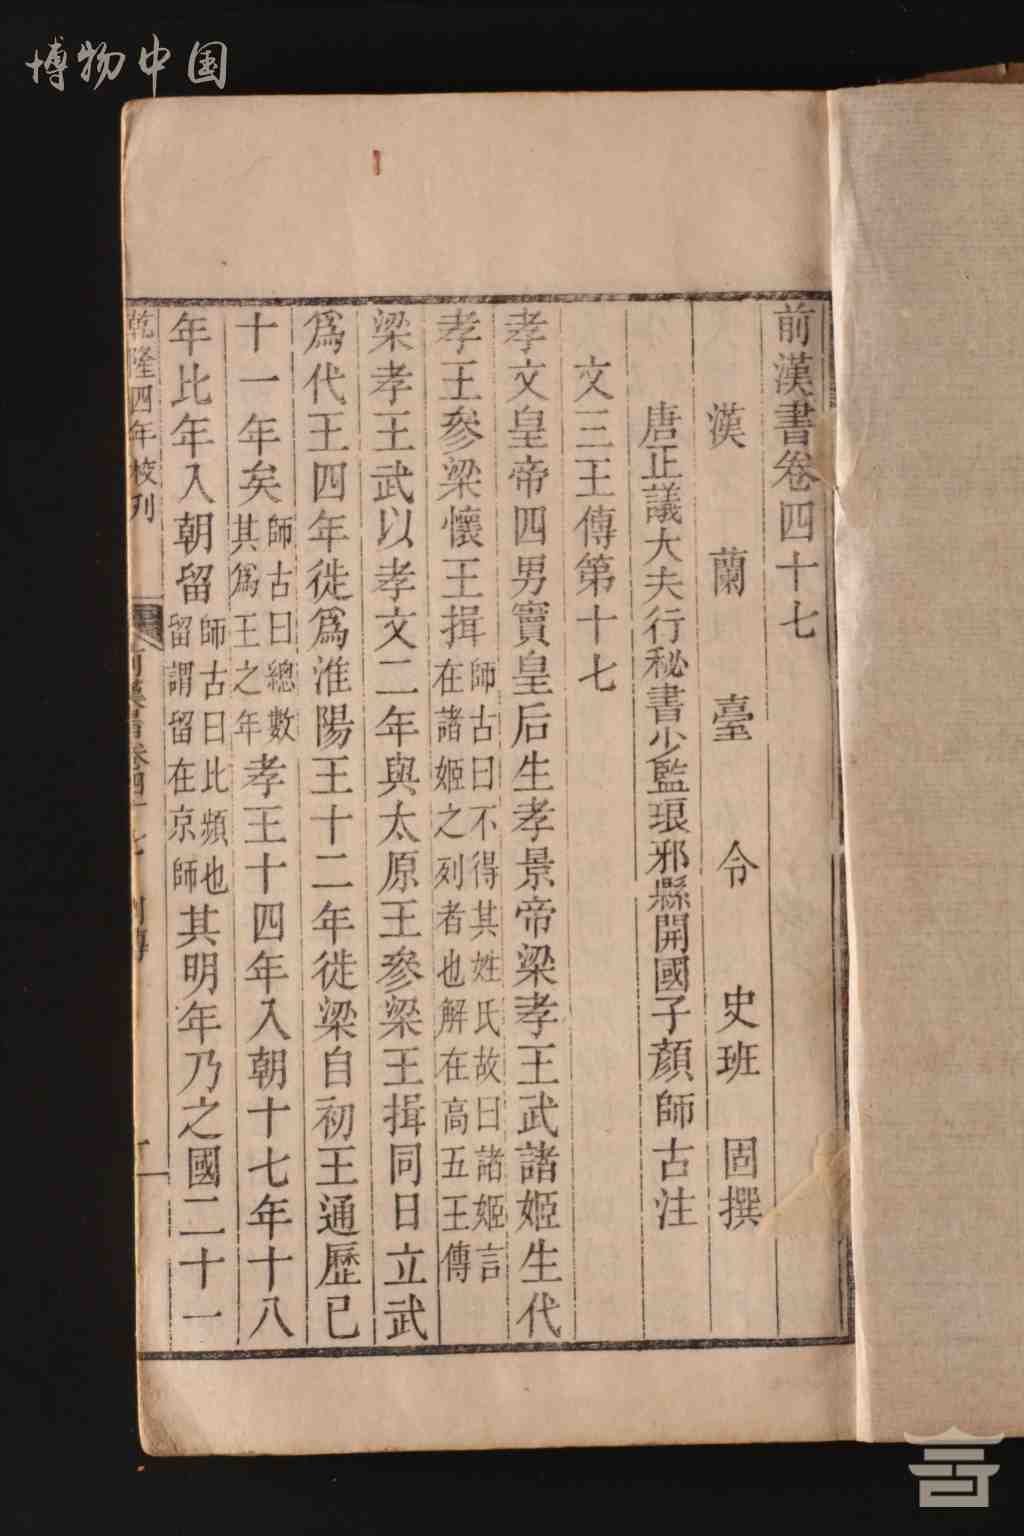 博物中国
前漢書卷四十七
漢蘭臺令史班固撰
唐正議大夫行秘書少監琅邪縣開國子顏師古注
文三王傳第十七
孝文皇帝四男竇皇后生孝景帝梁孝王武諸姬生代
孝王參梁懷王揖師古曰不得其姓氏故曰諸姬言在諸姬之列者也解在高五王傳
梁孝王武以孝文二年與太原王參梁王揖同日立武
爲代王四年徙爲淮陽王十二年徙梁自初王通歷已
十一年矣師古曰總數其爲王之年孝王十四年入朝十七年十八
年比年入朝留師古曰比頻也留謂留在京師其明年乃之國二十一
乾隆四年校刊
前漢書卷四十七 列傳 一